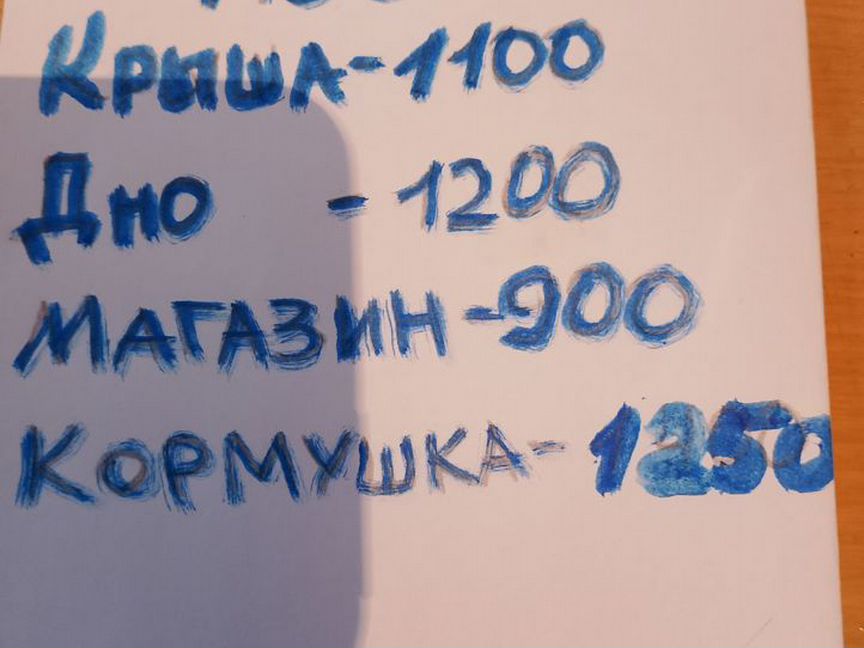 Крыша-1100
Дно - 1200
Магазин-900
Кормушка-1250